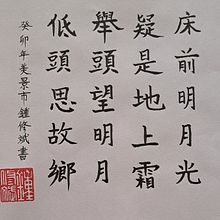 床前明月光
疑是地上霜
舉頭望明月
低頭思故鄉
癸卯年美景市鍾修斌書